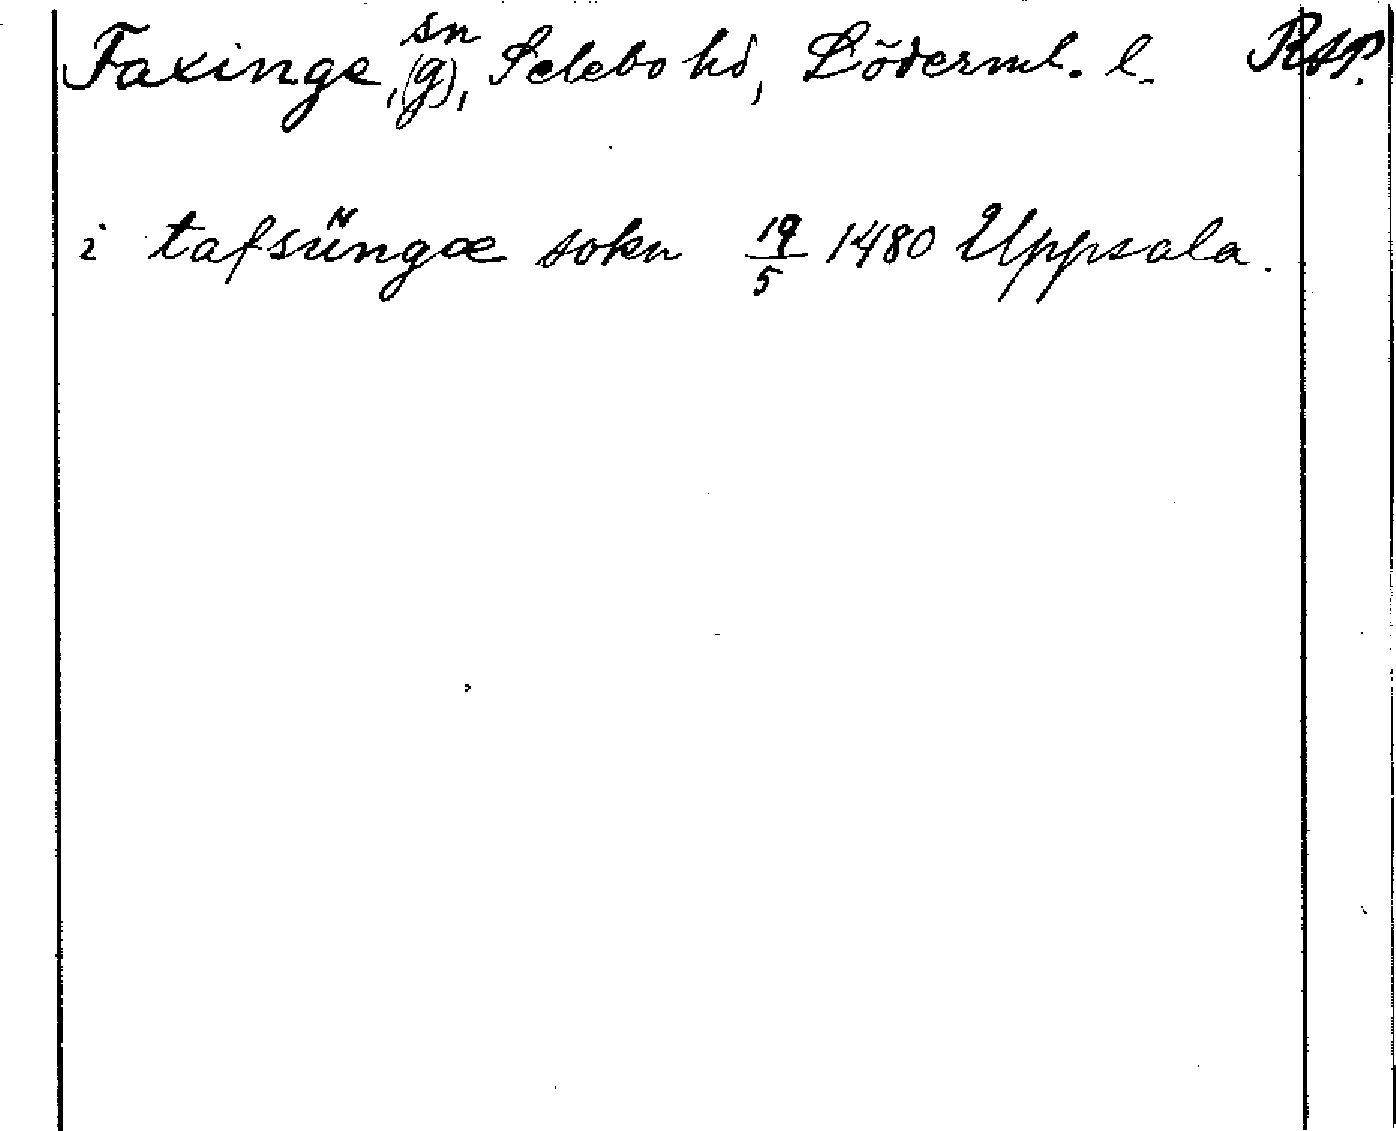 Taxinge, sn (g), Selebo hd, Söderml. l. Rsp.
i tafsüngæ sokn 19/5 1480 Uppsala.